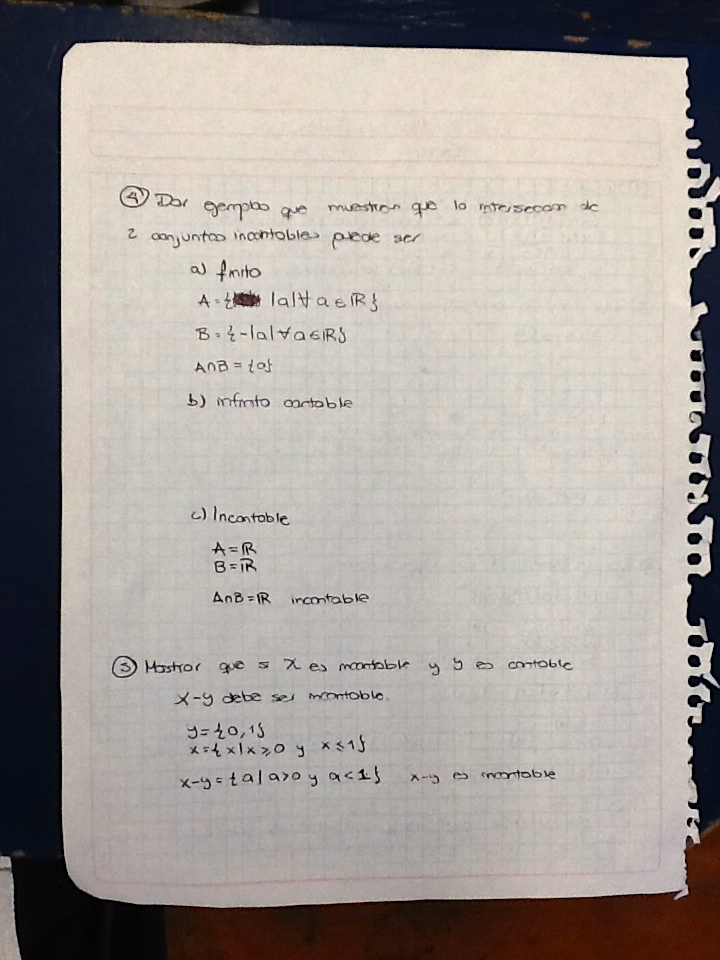 ④ Dar ejemplos que muestren que la intersección de
2 conjuntos incontables puede ser
a) finito
A = { |a| ∀ a ∈ ℝ}
B = {-|a| ∀ a ∈ ℝ}
A∩B = {0}
b) infinito contable
c) Incontable
A = ℝ
B = ℝ
A∩B = ℝ incontable
③ Mostrar que si X es incontable y Y es contable
X-Y debe ser incontable.
Y = {0,1}
X = {x | x ≥ 0 y x ≤ 1}
X-Y = {a | a>0 y a<1} X-Y es incontable